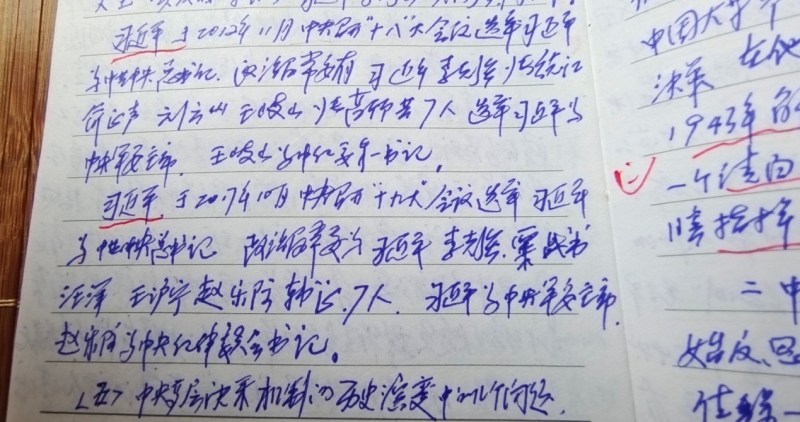 习近平于2012年11月中央召开"十八"大会议选举习近平
为中共中央总书记. 政治局常委有 习近平 李克强 张德江
俞正声 刘云山 王岐山 张高丽等7人 选举习近平为
中央军委主席. 王岐山为中纪委第一书记。
习近平 于2017年10月 中央召开"十九大"会议选举 习近平
为中共中央总书记 政治局常委为 习近平 李克强. 栗战书
汪洋 王沪宁 赵乐际 韩正. 7人. 习近平为中央军委主席.
赵乐际为中央纪律委员会书记。
<五> 中央高层决策机制的历史演变中的几个问题.
中国大
决策 在他
1943年的
一个
二 中